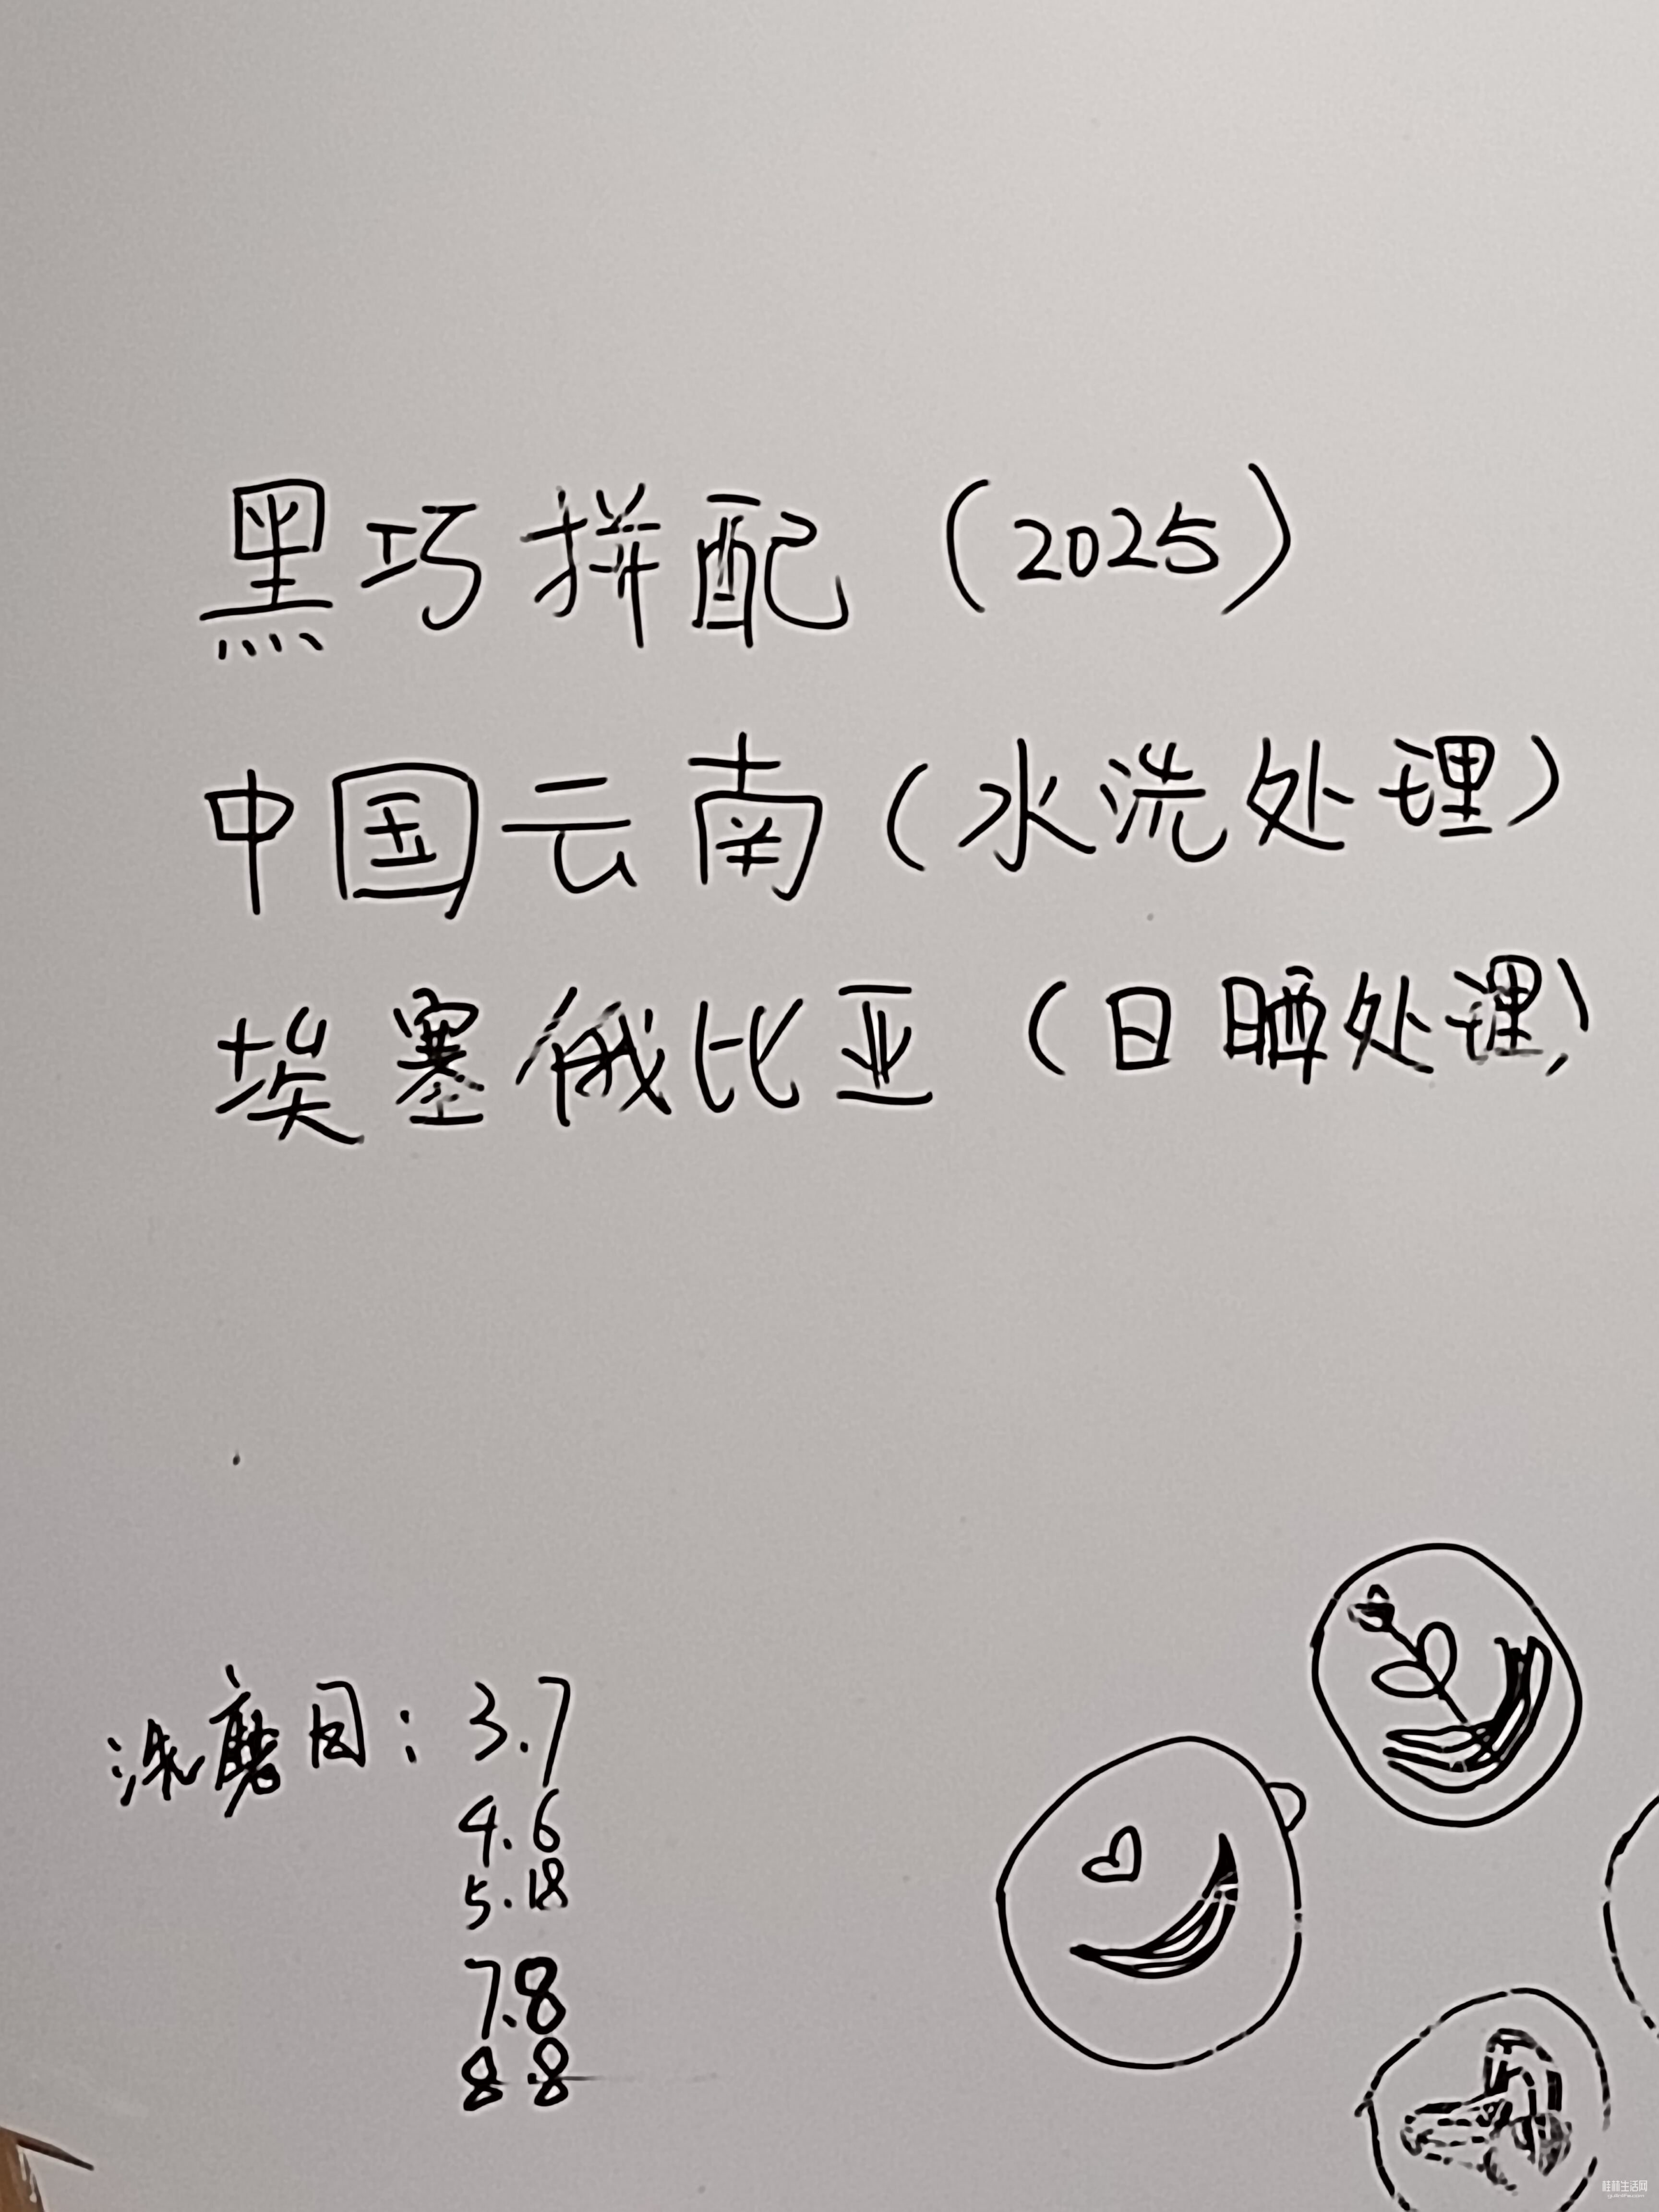 黑巧拼配（2025）
中国云南（水洗处理）
埃塞俄比亚（日晒处理）
洗磨因：3.7
4.6
5.18
7.8
8.8
桂林生活网